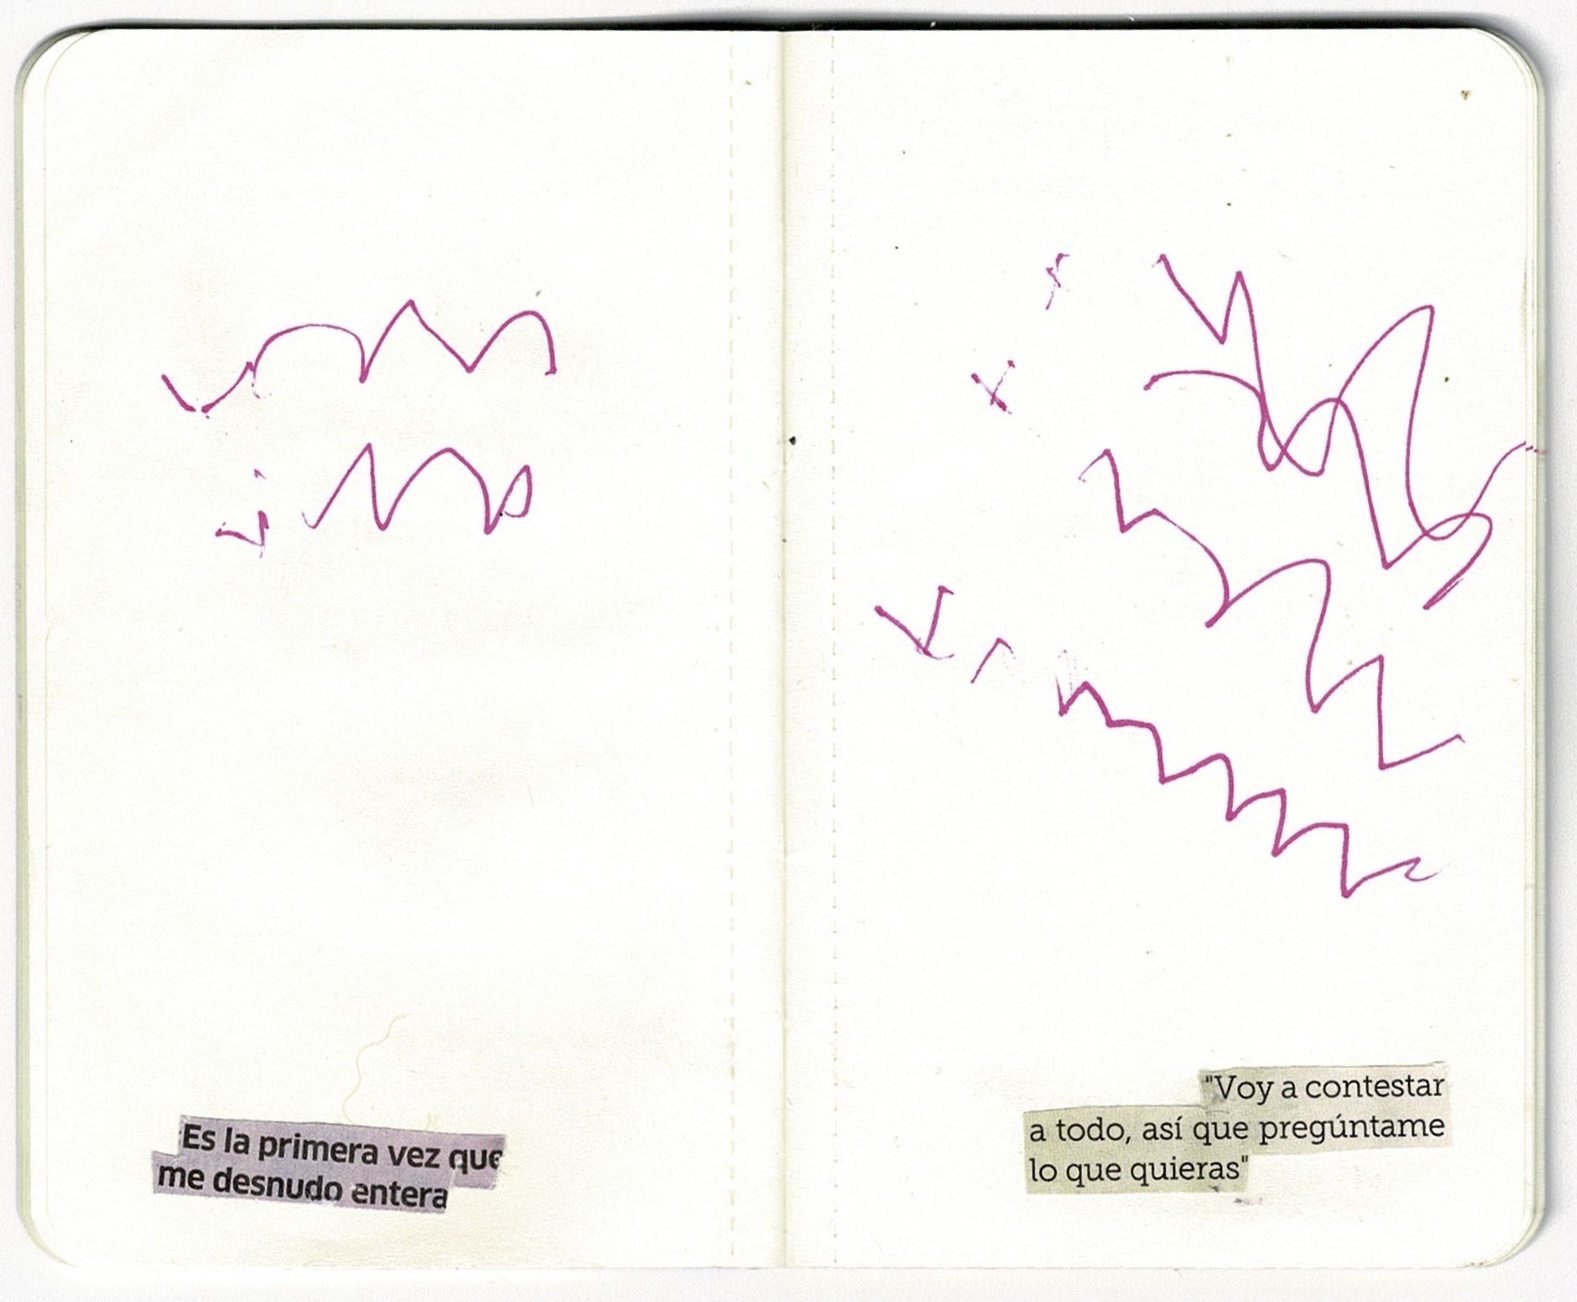 Es la primera vez que
me desnudo entera
"Voy a contestar
a todo, así que pregúntame
lo que quieras"